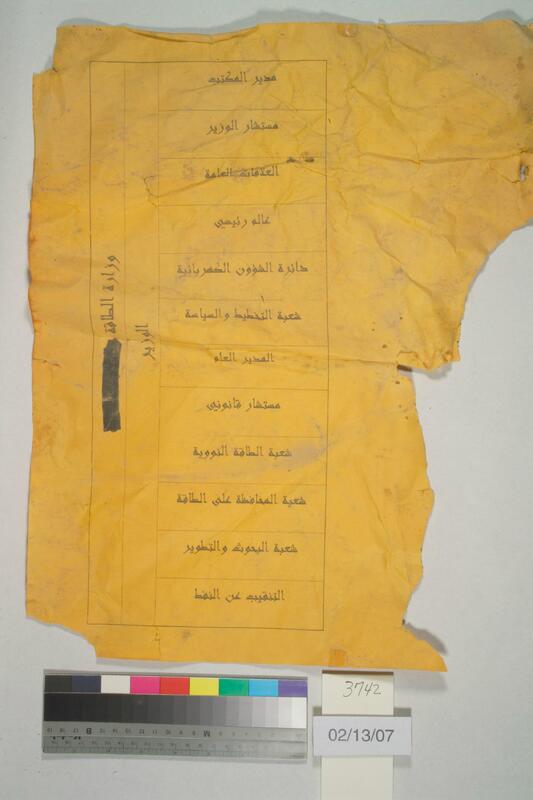 وزارة الطاقة
الوزير
مدير المكتب
مستشار الوزير
العلاقات العامة
عالم رئيسي
دائرة الشؤون الكهربائية
شعبة التخطيط والسياسة
المدير العام
مستشار قانوني
شعبة الطاقة النووية
شعبة المحافظة على الطاقة
شعبة البحوث والتطوير
التنقيب عن النفط
3742
02/13/07